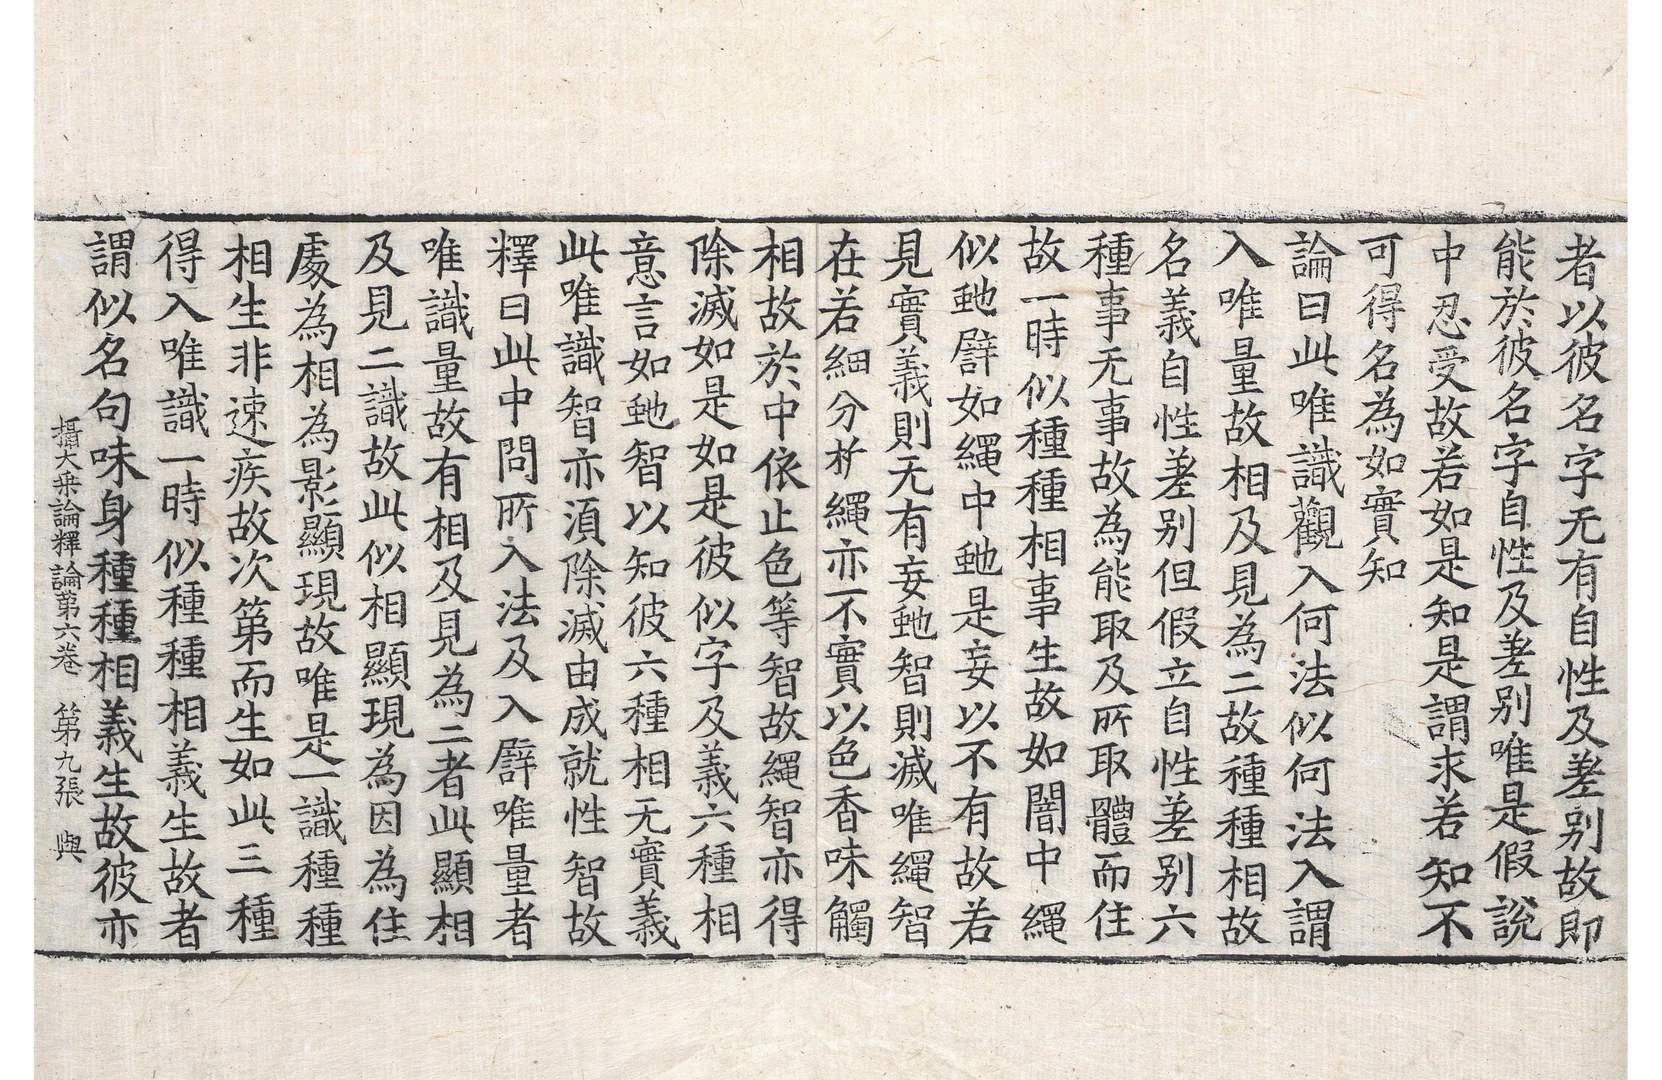 者以彼名字无有自性及差别故即
能於彼名字自性及差别唯是假說
中忍受故若如是知是謂求若知不
可得名為如實知
論曰此唯識觀入何法似何法入謂
入唯量故相及見為二故種種相故
名義自性差别但假立自性差别六
種事无事故為能取及所取體而住
故一時似種種相事生故如闇中繩
似虵譬如繩中虵是妄以不有故若
見實義則无有妄虵智則滅唯繩智
在若細分析繩亦不實以色香味觸
相故於中依止色等智故繩智亦得
除滅如是如是彼似字及義六種相
意言如虵智以知彼六種相无實義
此唯識智亦須除滅由成就性智故
釋曰此中問所入法及入譬唯量者
唯識量故有相及見為二者此顯相
及見二識故此似相顯現為因為住
處為相為影顯現故唯是一識種種
相生非速疾故次第而生如此三種
得入唯識一時似種種相義生故者
謂似名句味身種種相義生故彼亦
攝大乗論釋論第六卷 第九張 與